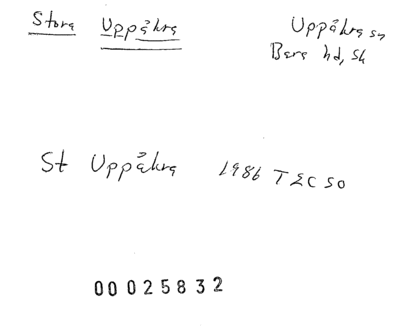 Stora Uppåkra
Uppåkra sn
Bara hd, Sk
St Uppåkra 1986 T2C SO
00025832